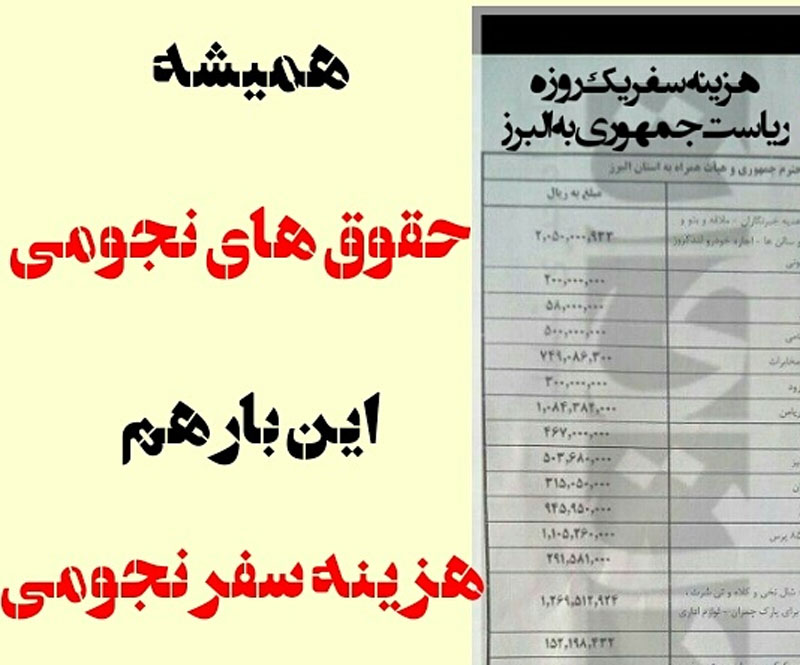 همیشه
حقوق های نجومی
این بار هم
هزینه سفر نجومی
هزینه سفر یک روزه
ریاست جمهوری به البرز
حترم جمهوری و هیأت همراه به استان البرز
مبلغ به ریال
هدیه خبرنگاران - ملافه و پتو و
سالن ها - اجاره خودرو لندکروز
۲,۰۵۰,۰۰۰,۹۳۳
۲۰۰,۰۰۰,۰۰۰
۵۸,۰۰۰,۰۰۰
۵۰۰,۰۰۰,۰۰۰
مخابرات ۷۴۹,۰۸۶,۳۰۰
۳۰۰,۰۰۰,۰۰۰
۱,۰۸۴,۳۸۲,۰۰۰
۴۶۷,۰۰۰,۰۰۰
۵۰۳,۶۸۰,۰۰۰
۳۱۵,۰۵۰,۰۰۰
۹۴۵,۹۵۰,۰۰۰
۸۵ پرس ۱,۱۰۵,۲۶۰,۰۰۰
۲۹۱,۵۸۱,۰۰۰
شال نخی و کلاه و تی شرت ،
برای پارک چمران - لوازم اداری
۱,۲۶۹,۵۱۲,۹۲۴
۱۵۲,۱۹۸,۴۳۲